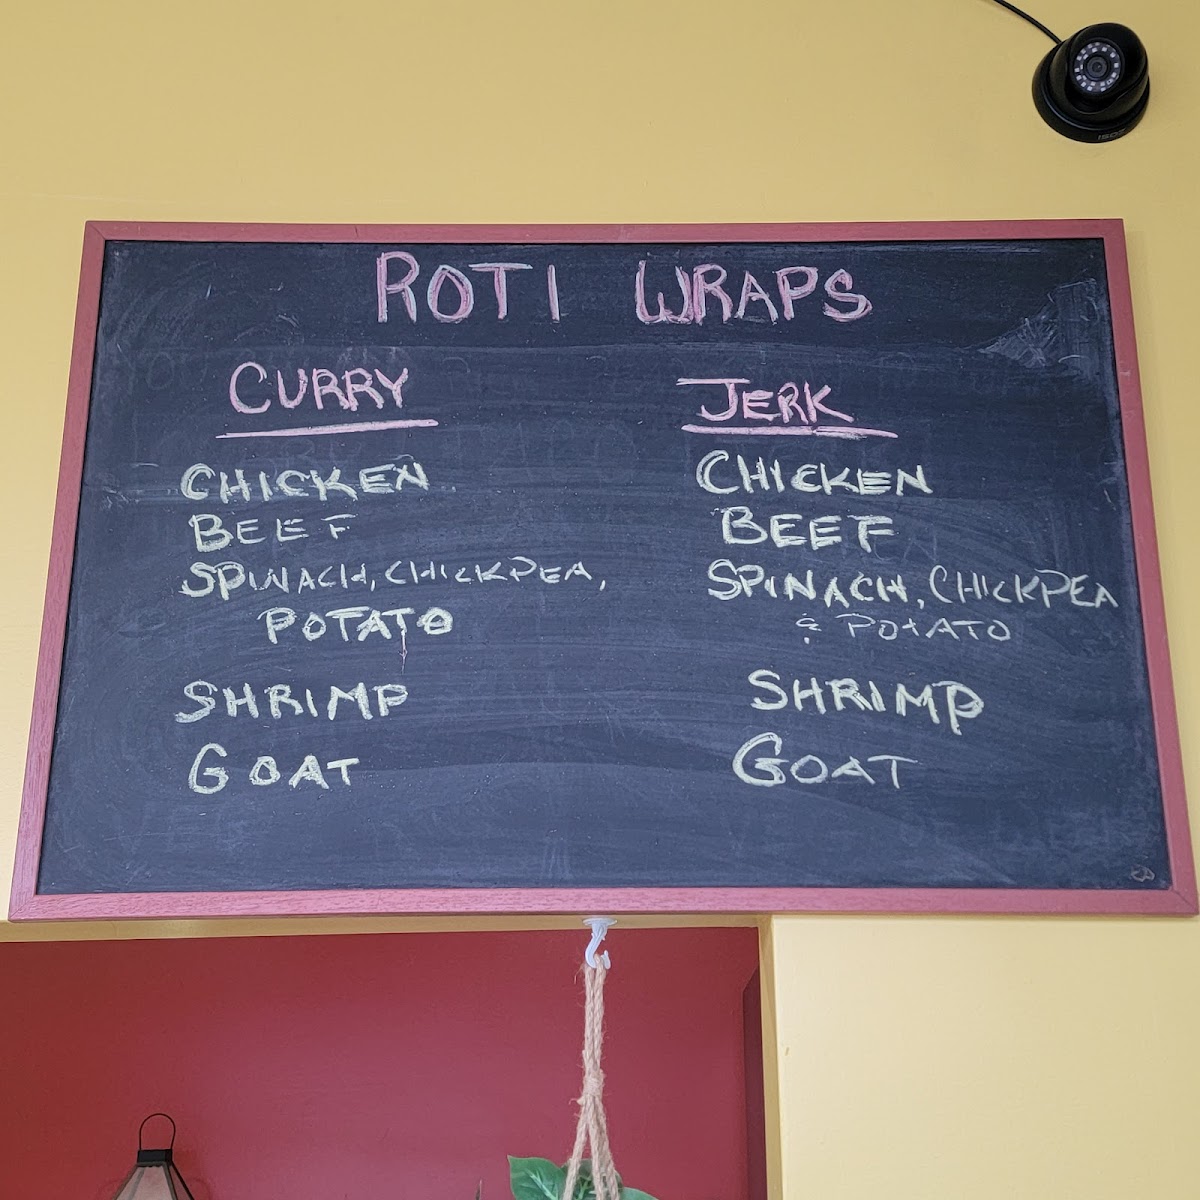 ROTI WRAPS
CURRY
CHICKEN
BEEF
SPINACH, CHICKPEA,
POTATO
SHRIMP
GOAT
JERK
CHICKEN
BEEF
SPINACH, CHICKPEA
& POTATO
SHRIMP
GOAT